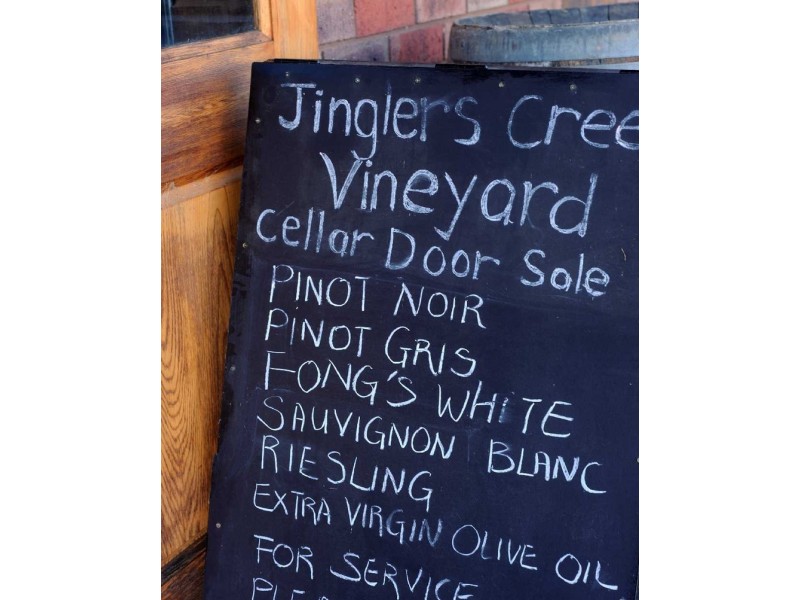 Jinglers Cree
Vineyard
Cellar Door Sale
PINOT NOIR
PINOT GRIS
FONG'S WHITE
SAUVIGNON BLANC
RIESLING
EXTRA VIRGIN OLIVE OIL
FOR SERVICE